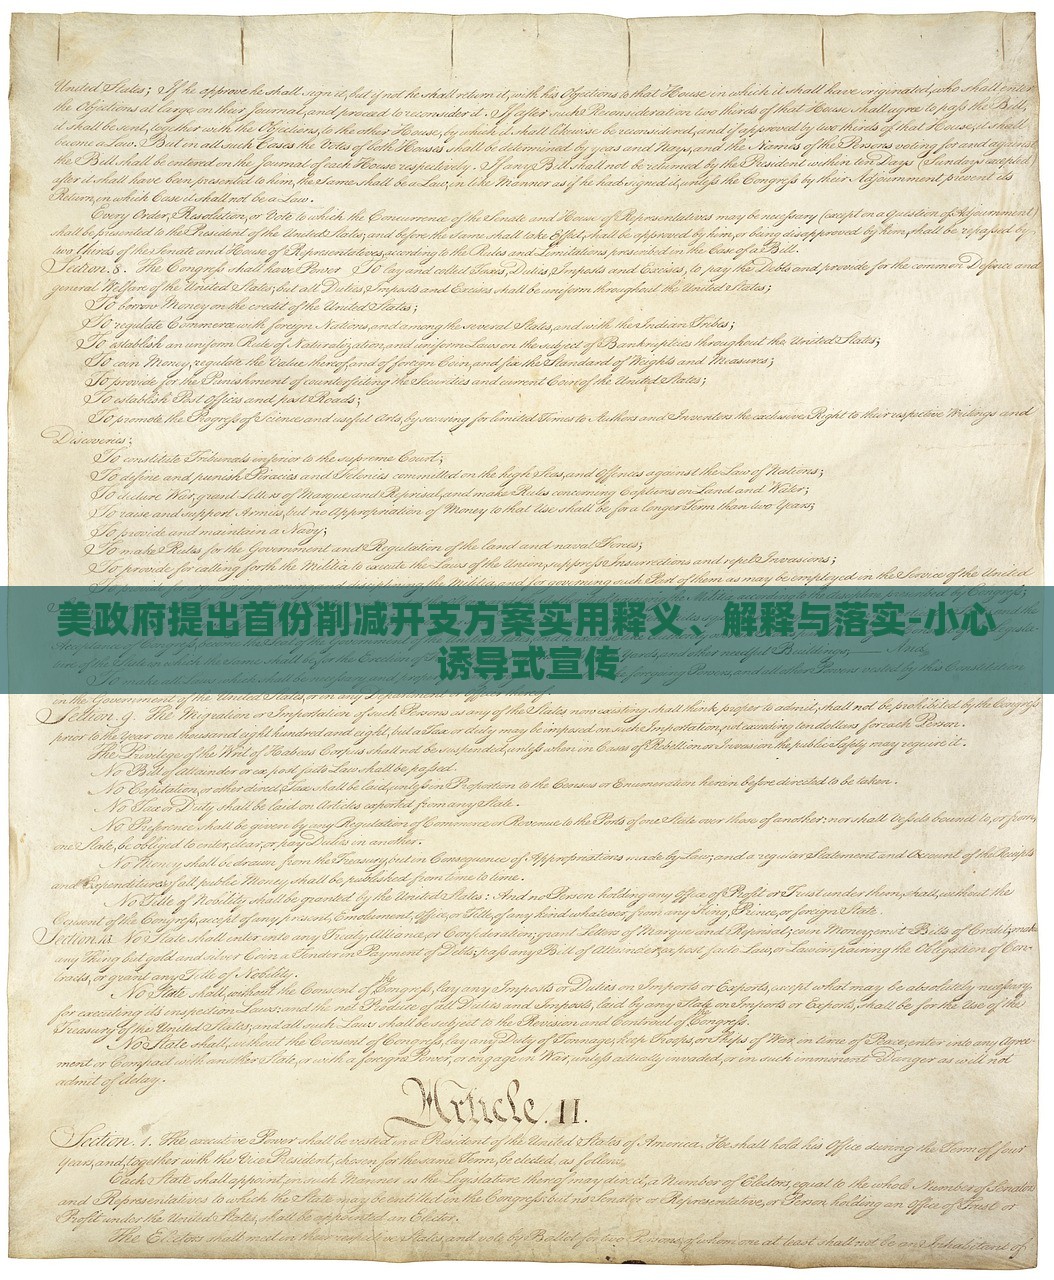 United States; If he approve he shall sign it, but if not he shall return it, with his Objections to that House in which it shall have originated, who shall enter
the Objections at large on their Journal, and proceed to reconsider it. If after such Reconsideration two thirds of that House shall agree to pass the Bill,
it shall be sent, together with the Objections, to the other House, by which it shall likewise be reconsidered, and if approved by two thirds of that House, it shall
become a Law. But in all such Cases the Votes of both Houses shall be determined by yeas and Nays, and the Names of the Persons voting for and against
the Bill shall be entered on the Journal of each House respectively. If any Bill shall not be returned by the President within ten Days (Sundays excepted)
after it shall have been presented to him, the Same shall be a Law, in like Manner as if he had signed it, unless the Congress by their Adjournment prevent its
Return, in which Case it shall not be a Law.
Every Order, Resolution, or Vote to which the Concurrence of the Senate and House of Representatives may be necessary (except on a question of Adjournment)
shall be presented to the President of the United States; and before the Same shall take Effect, shall be approved by him, or being disapproved by him, shall be repassed by
two thirds of the Senate and House of Representatives, according to the Rules and Limitations prescribed in the Case of a Bill.
Section. 8. The Congress shall have Power To lay and collect Taxes, Duties, Imposts and Excises, to pay the Debts and provide for the common Defence and
general Welfare of the United States; but all Duties, Imposts and Excises shall be uniform throughout the United States;
To borrow Money on the credit of the United States;
To regulate Commerce with foreign Nations, and among the several States, and with the Indian Tribes;
To establish an uniform Rule of Naturalization, and uniform Laws on the subject of Bankruptcies throughout the United States;
To coin Money, regulate the Value thereof, and of foreign Coin, and fix the Standard of Weights and Measures;
To provide for the Punishment of counterfeiting the Securities and current Coin of the United States;
To establish Post Offices and post Roads;
To promote the Progress of Science and useful Arts, by securing for limited Times to Authors and Inventors the exclusive Right to their respective Writings and
Discoveries;
To constitute Tribunals inferior to the supreme Court;
To define and punish Piracies and Felonies committed on the high Seas, and Offences against the Law of Nations;
To declare War, grant Letters of Marque and Reprisal, and make Rules concerning Captures on Land and Water;
To raise and support Armies, but no Appropriation of Money to that Use shall be for a longer Term than two Years;
To provide and maintain a Navy;
To make Rules for the Government and Regulation of the land and naval Forces;
To provide for calling forth the Militia to execute the Laws of the Union, suppress Insurrections and repel Invasions;
美政府提出首份削减开支方案实用释义、解释与落实-小心
诱导式宣传
in the Government of the United States, or in any Department or Officer thereof.
Section. 9. The Migration or Importation of such Persons as any of the States now existing shall think proper to admit, shall not be prohibited by the Congress
prior to the Year one thousand eight hundred and eight, but a Tax or duty may be imposed on such Importation, not exceeding ten dollars for each Person.
The Privilege of the Writ of Habeas Corpus shall not be suspended, unless when in Cases of Rebellion or Invasion the public Safety may require it.
No Bill of Attainder or ex post facto Law shall be passed.
No Capitation, or other direct, Tax shall be laid, unless in Proportion to the Census or Enumeration herein before directed to be taken.
No Tax or Duty shall be laid on Articles exported from any State.
No Preference shall be given by any Regulation of Commerce or Revenue to the Ports of one State over those of another: nor shall Vessels bound to, or from,
one State, be obliged to enter, clear, or pay Duties in another.
No Money shall be drawn from the Treasury, but in Consequence of Appropriations made by Law; and a regular Statement and Account of the Receipts
and Expenditures of all public Money shall be published from time to time.
No Title of Nobility shall be granted by the United States: And no Person holding any Office of Profit or Trust under them, shall, without the
Consent of the Congress, accept of any present, Emolument, Office, or Title, of any kind whatever, from any King, Prince, or foreign State.
Section. 10. No State shall enter into any Treaty, Alliance, or Confederation; grant Letters of Marque and Reprisal; coin Money; emit Bills of Credit; make
any Thing but gold and silver Coin a Tender in Payment of Debts; pass any Bill of Attainder, ex post facto Law, or Law impairing the Obligation of Con-
tracts, or grant any Title of Nobility.
No State shall, without the Consent of the Congress, lay any Imposts or Duties on Imports or Exports, except what may be absolutely necessary
for executing its inspection Laws: and the net Produce of all Duties and Imposts, laid by any State on Imports or Exports, shall be for the Use of the
Treasury of the United States; and all such Laws shall be subject to the Revision and Controul of the Congress.
No State shall, without the Consent of Congress, lay any Duty of Tonnage, keep Troops, or Ships of War in time of Peace, enter into any Agree-
ment or Compact with another State, or with a foreign Power, or engage in War, unless actually invaded, or in such imminent Danger as will not
admit of delay.
Article. II.
Section. 1. The executive Power shall be vested in a President of the United States of America. He shall hold his Office during the Term of four
Years, and, together with the Vice President, chosen for the same Term, be elected, as follows
Each State shall appoint, in such Manner as the Legislature thereof may direct, a Number of Electors, equal to the whole Number of Senators
and Representatives to which the State may be entitled in the Congress: but no Senator or Representative, or Person holding an Office of Trust or
Profit under the United States, shall be appointed an Elector.
The Electors shall meet in their respective States, and vote by Ballot for two Persons, of whom one at least shall not be an Inhabitant of